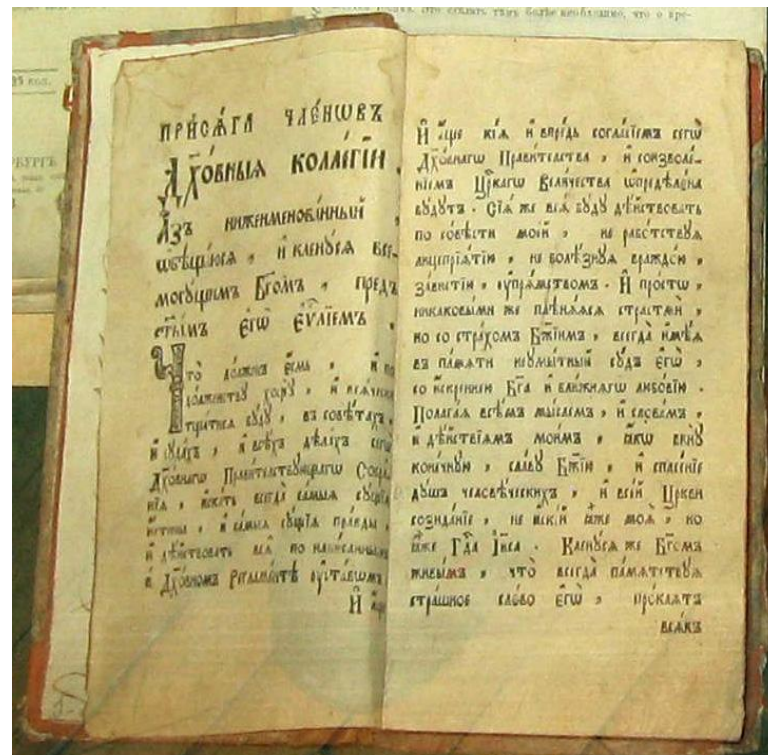 ПРИСѦ́ГА ЧЛЕ́НѠВЪ
ДХ҃О́ВНЫѦ КОЛЛЕ́ГІИ.
А҆́зъ нижеименова́нный,
ѡ҆бѣща́юсѧ, и҆ клену́сѧ все-
могу́щимъ Бг҃омъ, пред̾
ст҃ы́мъ є҆гѡ̀ є҆ѵⷢ҇лїемъ,
что̀ до́лженъ є҆́смь, и҆ по
до́лженству хощꙋ̀, и҆ всѧ́чески
тщатисѧ бꙋ́дꙋ, въ совѣ́тахъ,
и҆ сꙋдѣ́хъ, и҆ всѣ́хъ дѣлѣ́хъ сегѡ̀
Дꙋхо́внагѡ Прави́тельствꙋющагѡ Собра́-
нїѧ, и҆ска́ть всегда̀ са́мыѧ сꙋ́щїѧ
и҆́стины, и҆ са́мыѧ сꙋ́щїѧ пра́вды,
и҆ дѣ́йствовать всѧ̀ по напи́саннымъ
в̾ Дꙋхо́вномъ Регла́ментѣ ᲂу҆ста́вѡмъ
И҆ а҆́ще
И҆ а҆́ще кі́ѧ и҆ впре́дь согла́сїемъ сегѡ̀
Дꙋхо́внагѡ Прави́тельства, и҆ соизволе́-
нїемъ Цр҃кагѡ Вели́чества ѡ҆предѣлена̀
бꙋ́дꙋтъ. Сїѧ̑ же всѧ̀ бꙋ́дꙋ дѣ́йствовать
по со́вѣсти мое́й, не рабо́тствꙋѧ
лицепрїѧ́тїю, не болѣ́знꙋѧ враждо́ю,
за́вистїю, ᲂу҆прѧ́мствомъ. И҆ про́стѡ,
никаковы́ми же плѣнѧ́ѧсѧ страстьмѝ,
но со стра́хомъ Бж҃їимъ, всегда̀ и҆мѣ́ѧ
въ па́мѧти неꙋмы́тный сꙋ́дъ є҆гѡ̀,
со и҆́скреннею Бг҃а и҆ бли́жнѧгѡ любо́вїю.
Полага́ѧ всѣ́мъ мы́слемъ, и҆ словє́мъ,
и҆ дѣ́йствїѧмъ мои́мъ, ꙗ҆́кѡ винꙋ̀
коне́чнꙋю, сла́вꙋ Бж҃їю, и҆ спасе́нїе
дꙋ́шъ человѣ́ческихъ, и҆ всей Цр҃кви
созида́нїе, не и҆скі́й ꙗ҆́же моѧ̑, но
ꙗ҆́же Гд҃а І҆и҃са. Клену́сѧ же Бг҃омъ
живы́мъ, что̀ всегда̀ па́мѧтствꙋѧ
стра́шное сло́во є҆гѡ̀, про́клѧтъ
всѧ́къ